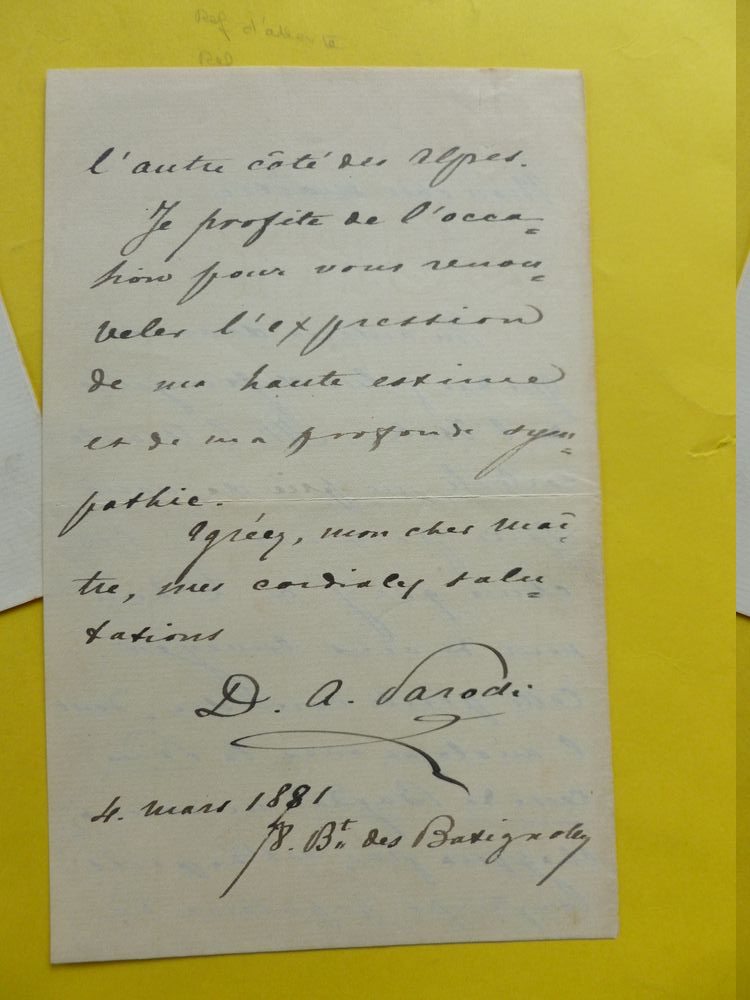 l'autre côté des Alpes.
Je profite de l'occa=
sion pour vous renou=
veler l'expression
de ma haute estime
et de ma profonde sym=
pathie.
Agréez, mon cher maî=
tre, mes cordiales salu=
tations
D. A. Parodi
4. mars 1881
8. Bt des Batignolles